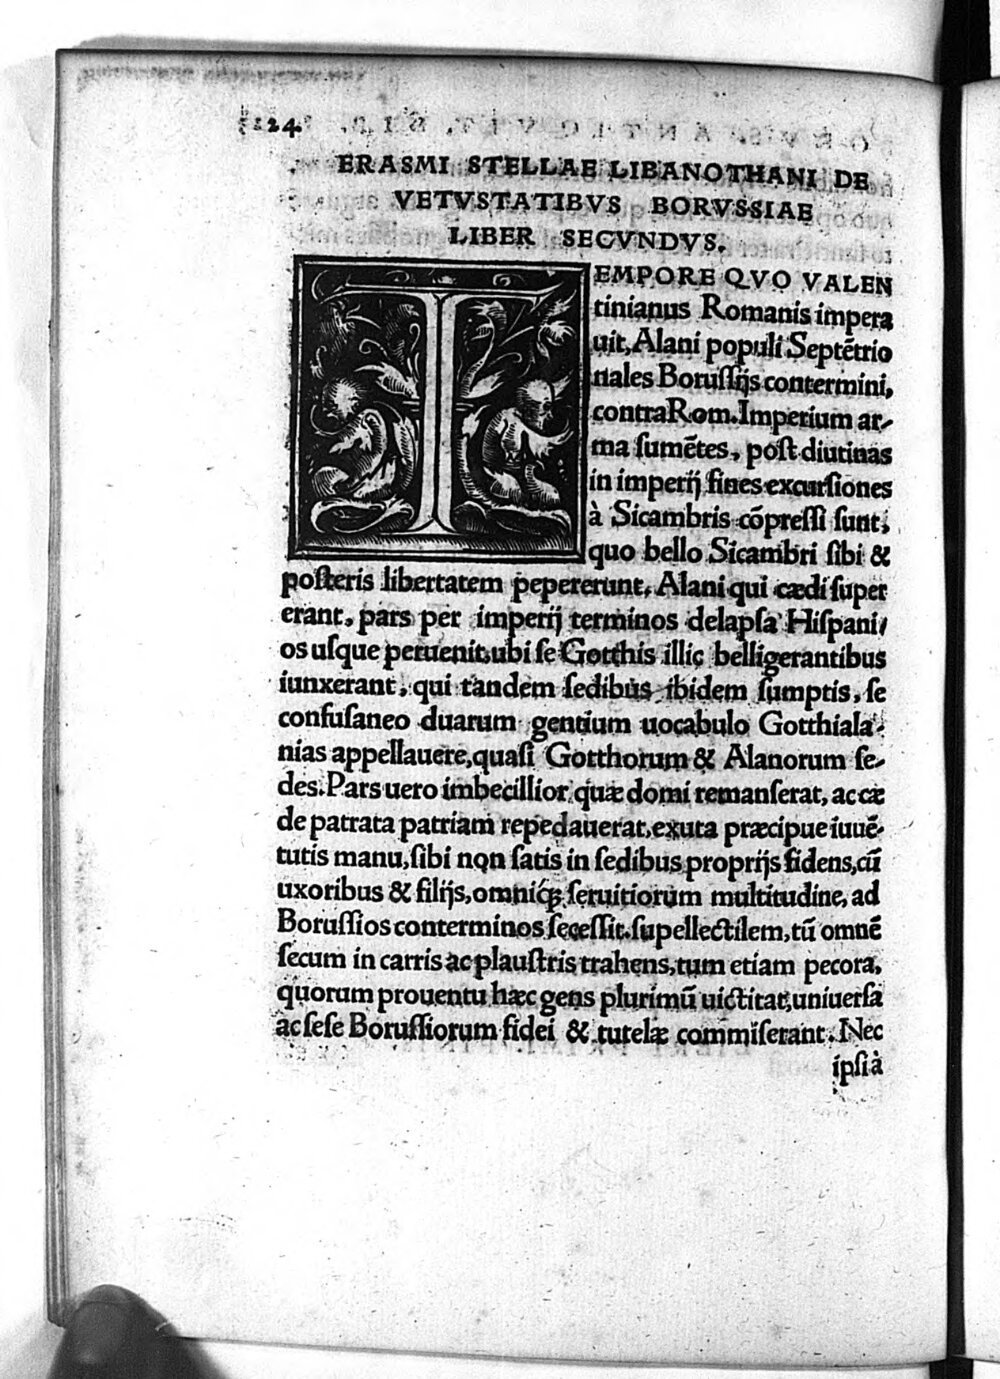 124
ERASMI STELLAE LIBANOTHANI DE
VETVSTATIBVS BORVSSIAE
LIBER SECVNDVS.
TEMPORE QVO VALEN
tinianus Romanis impera
uit, Alani populi Septẽtrio
nales Borussijs contermini,
contra Rom. Imperium ar-
ma sumẽtes, post diutinas
in imperij fines excursiones
à Sicambris cõpressi sunt,
quo bello Sicambri sibi &
posteris libertatem pepererunt, Alani qui cædi super
erant, pars per imperij terminos delapsa Hispani/
os usque peruenit, ubi se Gotthis illic belligerantibus
iunxerant, qui tandem sedibus ibidem sumptis, se
confusaneo duarum gentium uocabulo Gotthiala-
nias appellauere, quasi Gotthorum & Alanorum se-
des. Pars uero imbecillior, quæ domi remanserat, ac cæ
de patrata patriam repedauerat, exuta præcipue iuuẽ-
tutis manu, sibi non satis in sedibus proprijs fidens, cũ
uxoribus & filijs, omniq́; seruitiorum multitudine, ad
Borussios conterminos secessit. supellectilem, tũ omnẽ
secum in carris ac plaustris trahens, tum etiam pecora,
quorum prouentu hæc gens plurimũ uictitat, uniuersa
ac sese Borussiorum fidei & tutelæ commiserant. Nec
ipsi à